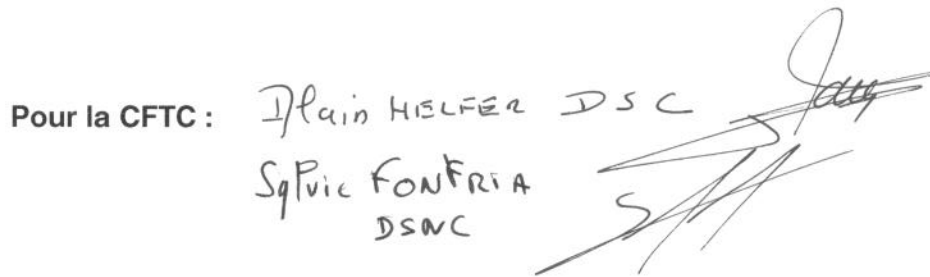 Pour la CFTC : Alain HELFER DSC
Sylvie FONFRIA
DSNC